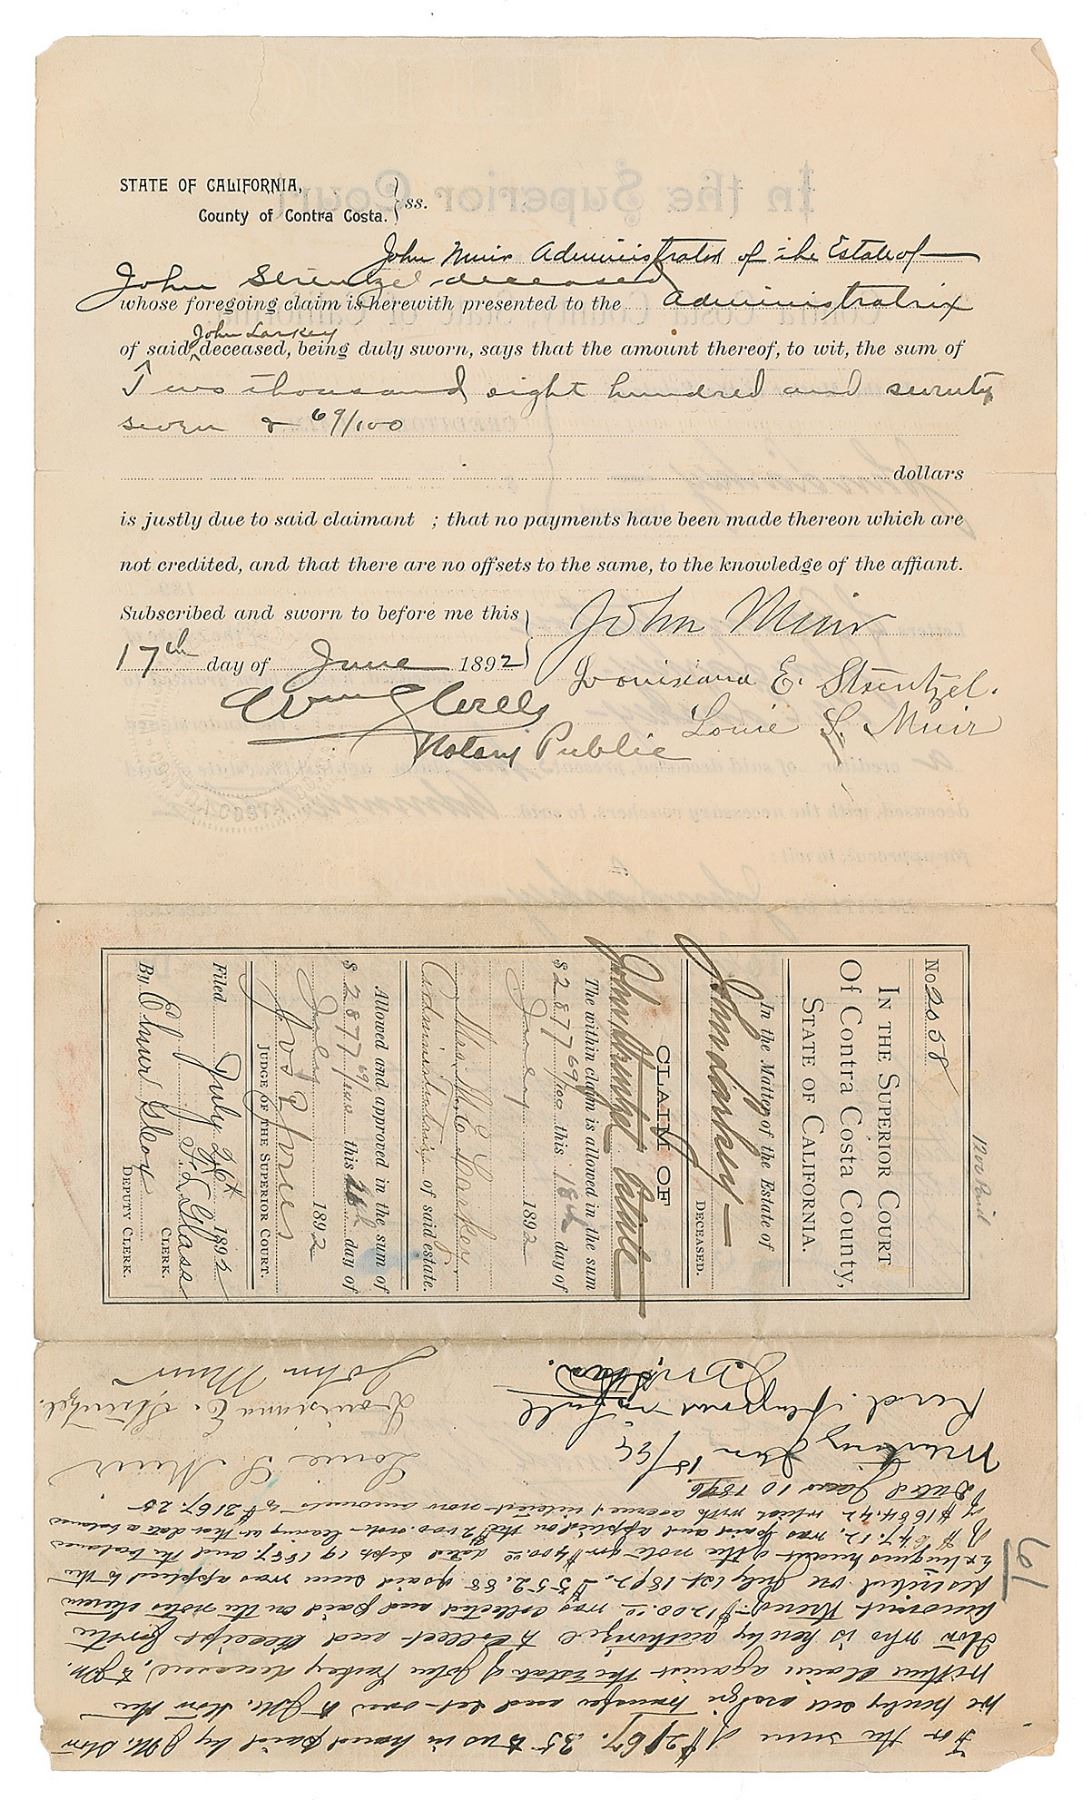 STATE OF CALIFORNIA,
County of Contra Costa. } ss.
John Muir Administrator of the Estate of
John Strentzel deceased
whose foregoing claim is herewith presented to the Administratrix
John Larkey
of said ^ deceased, being duly sworn, says that the amount thereof, to wit, the sum of
Two thousand eight hundred and seventy
seven & 69/100
dollars
is justly due to said claimant ; that no payments have been made thereon which are
not credited, and that there are no offsets to the same, to the knowledge of the affiant.
Subscribed and sworn to before me this
17th day of June 1892
John Muir
Louisiana E. Strentzel.
Louie S. Muir
Notary Public
No 2058
IN THE SUPERIOR COURT
Of Contra Costa County,
STATE OF CALIFORNIA.
In the Matter of the Estate of
John Larkey
DECEASED.
CLAIM OF
John Strentzel Estate
The within claim is allowed in the sum
$ 2877 69/100 this 18th day of
1892
Mrs M. E. Larkey.
Administratrix of said estate.
Allowed and approved in the sum of
$ 2877 69/100 this day of
1892
JUDGE OF THE SUPERIOR COURT.
Filed July 26th 1892
F. L. Glass
CLERK.
By
DEPUTY CLERK.
For the sum of $2167.35 to us in hand paid by J. M. Stow
we hereby sell assign transfer and set-over to J. M. Stow the
within claim against the Estate of John Larkey deceased, & J. M.
Stow who is hereby authorized to collect and receipt for the
amount thereof. $1200.00 was collected and paid on the notes therein
described on July 1st 1892. $552.88 of said sum was applied to the
extinguishment of the note for $400.00 dated Sept 19 1887. and the balance
of $647.12, was paid and applied on the $2000.00 note leaving at that date a balance
of $1684.42 which with accrued interest now amounts to $2167.25
Dated Jan 10 1896
Louie S. Muir
Louisiana E. Strentzel.
John Muir
Jan 15/96
Recd. payment in full
61